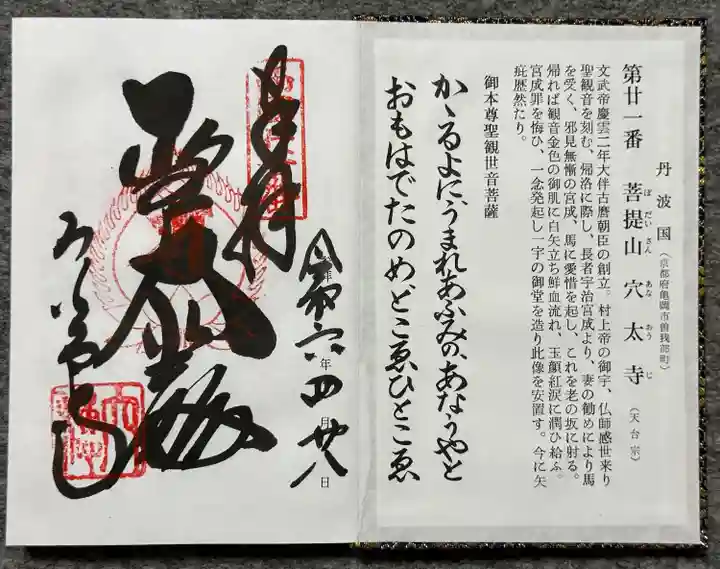 丹波国（京都府亀岡市曽我部町）
第廿一番 菩提山 穴太寺（天台宗）
ぼだいさん あなおうじ
文武帝慶雲二年大伴古麿朝臣の創立。村上帝の御宇、仏師感世来り
聖観音を刻む、帰洛に際し、長者宇治宮成より、妻の勧めにより馬
を受く、邪見無慚の宮成、馬に愛惜を起し、これを老の坂に射る。
帰れば観音金色の御肌に白矢立ち鮮血流れ、玉顔紅涙に潤ひ給ふ。
宮成罪を悔ひ、一念発起し一宇の御堂を造り此像を安置す。今に矢
疵歴然たり。
御本尊聖観世音菩薩
かゝるよにうまれあふみのあなうやと
おもはでたのめどこゑひとこゑ
奉拝
令和六年四月廿八日
聖大悲殿
あなう寺